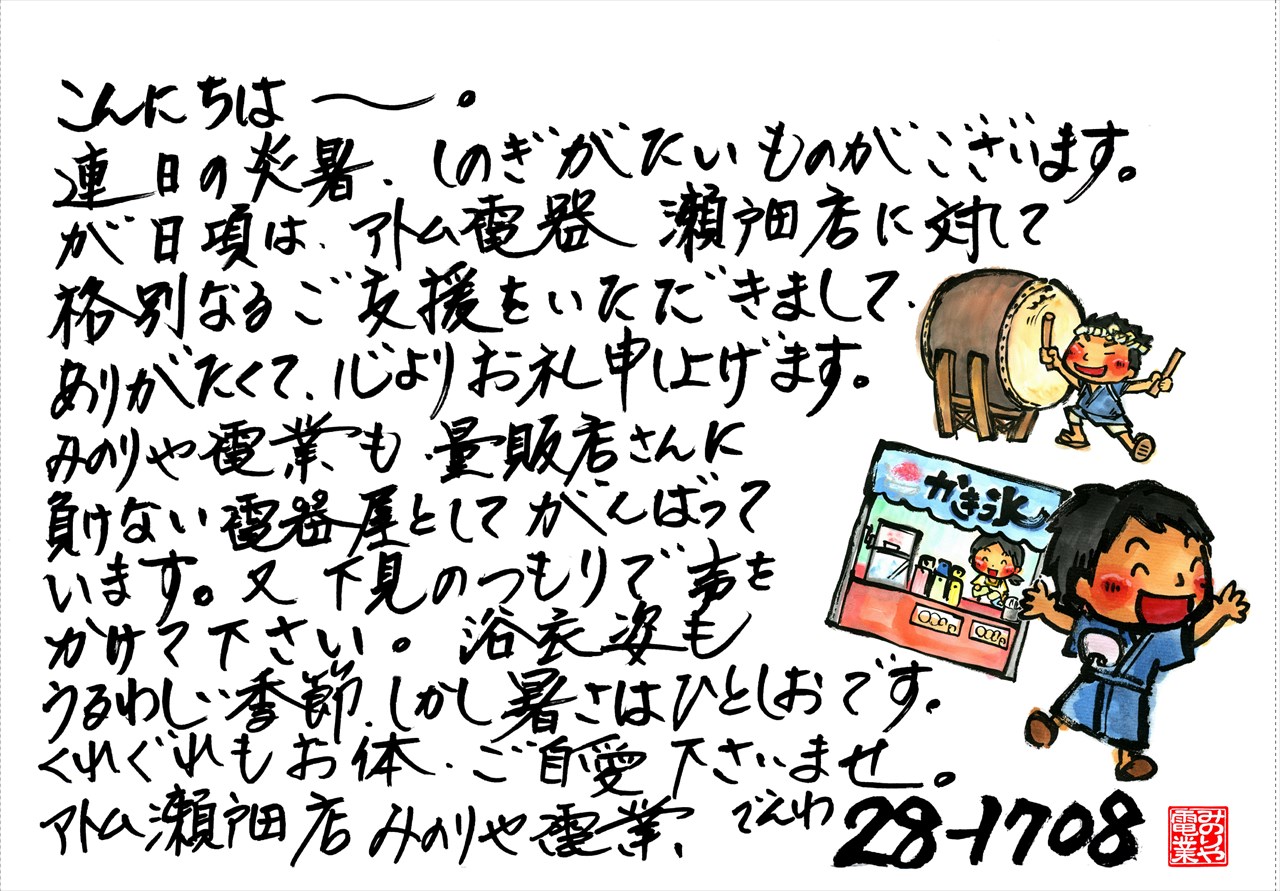 こんにちは〜。
連日の炎暑、しのぎがたいものがございます。
が日頃は、アトム電器 瀬戸田店に対して
格別なるご支援をいただきまして、
ありがたくて、心よりお礼申し上げます。
みのりや電業も量販店さんに
負けない電器屋としてがんばって
います。又下見のつもりで声を
かけて下さい。浴衣姿も
うるわしい季節、しかし暑さはひとしおです。
くれぐれもお体、ご自愛下さいませ。
アトム瀬戸田店 みのりや電業、でんわ 28-1708
かき氷
みのりや
電業